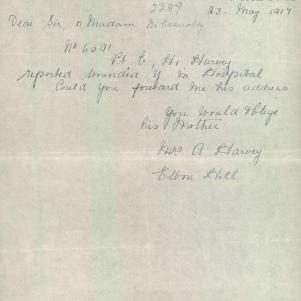 2289
23. May 1917
Dear Sir or Madam
No 6091
Pt. E, H, Harvey
reported wounded & in Hospital
Could you forward me his address
You Would Oblige
his Mother
Mrs A Harvey
Hill